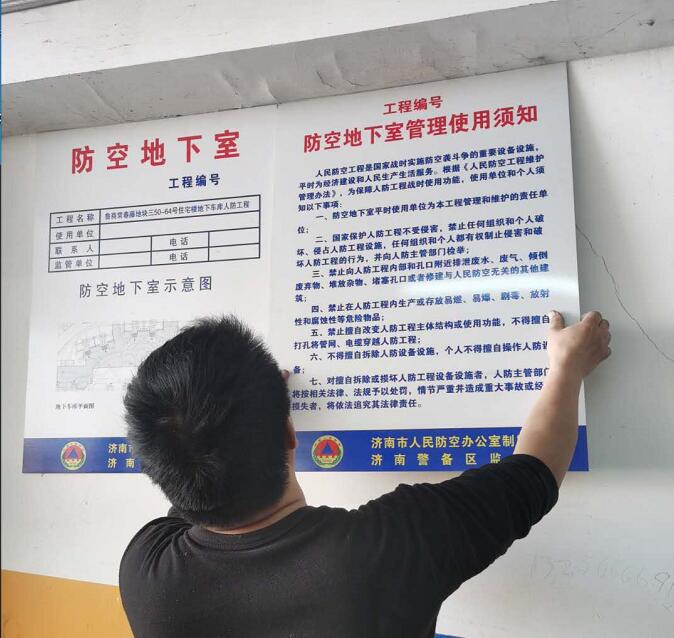 防空地下室
工程编号
工程名称 鲁商常春藤地块三50-64号住宅楼地下车库人防工程
使用单位
联系人 电话
监管单位 电话
防空地下室示意图
地下车库平面图
济南市人
济南
工程编号
防空地下室管理使用须知
人民防空工程是国家战时实施防空袭斗争的重要设备设施，
平时为经济建设和人民生产生活服务。根据《人民防空工程维护
管理办法》，为保障人防工程战时使用功能，使用单位和个人须
知以下事项：
一、防空地下室平时使用单位为本工程管理和维护的责任单
位；
二、国家保护人防工程不受侵害，禁止任何组织和个人破
坏、侵占人防工程设施，任何组织和个人都有权制止侵害和破
坏人防工程的行为，并向人防主管部门检举；
三、禁止向人防工程内部和孔口附近排泄废水、废气、倾倒
废弃物、堆放杂物、堵塞孔口或者修建与人民防空无关的其他建
筑；
四、禁止在人防工程内生产或存放易燃、易爆、剧毒、放射
性和腐蚀性等危险物品；
五、禁止擅自改变人防工程主体结构或使用功能，不得擅自
打孔将管网、电缆穿越人防工程；
六、不得擅自拆除人防设备设施，个人不得擅自操作人防设
备；
七、对擅自拆除或损坏人防工程设备设施者，人防主管部门
将按相关法律、法规予以处罚，情节严重并造成重大事故或经
损失者，将依法追究其法律责任。
济南市人民防空办公室制
济南警备区监